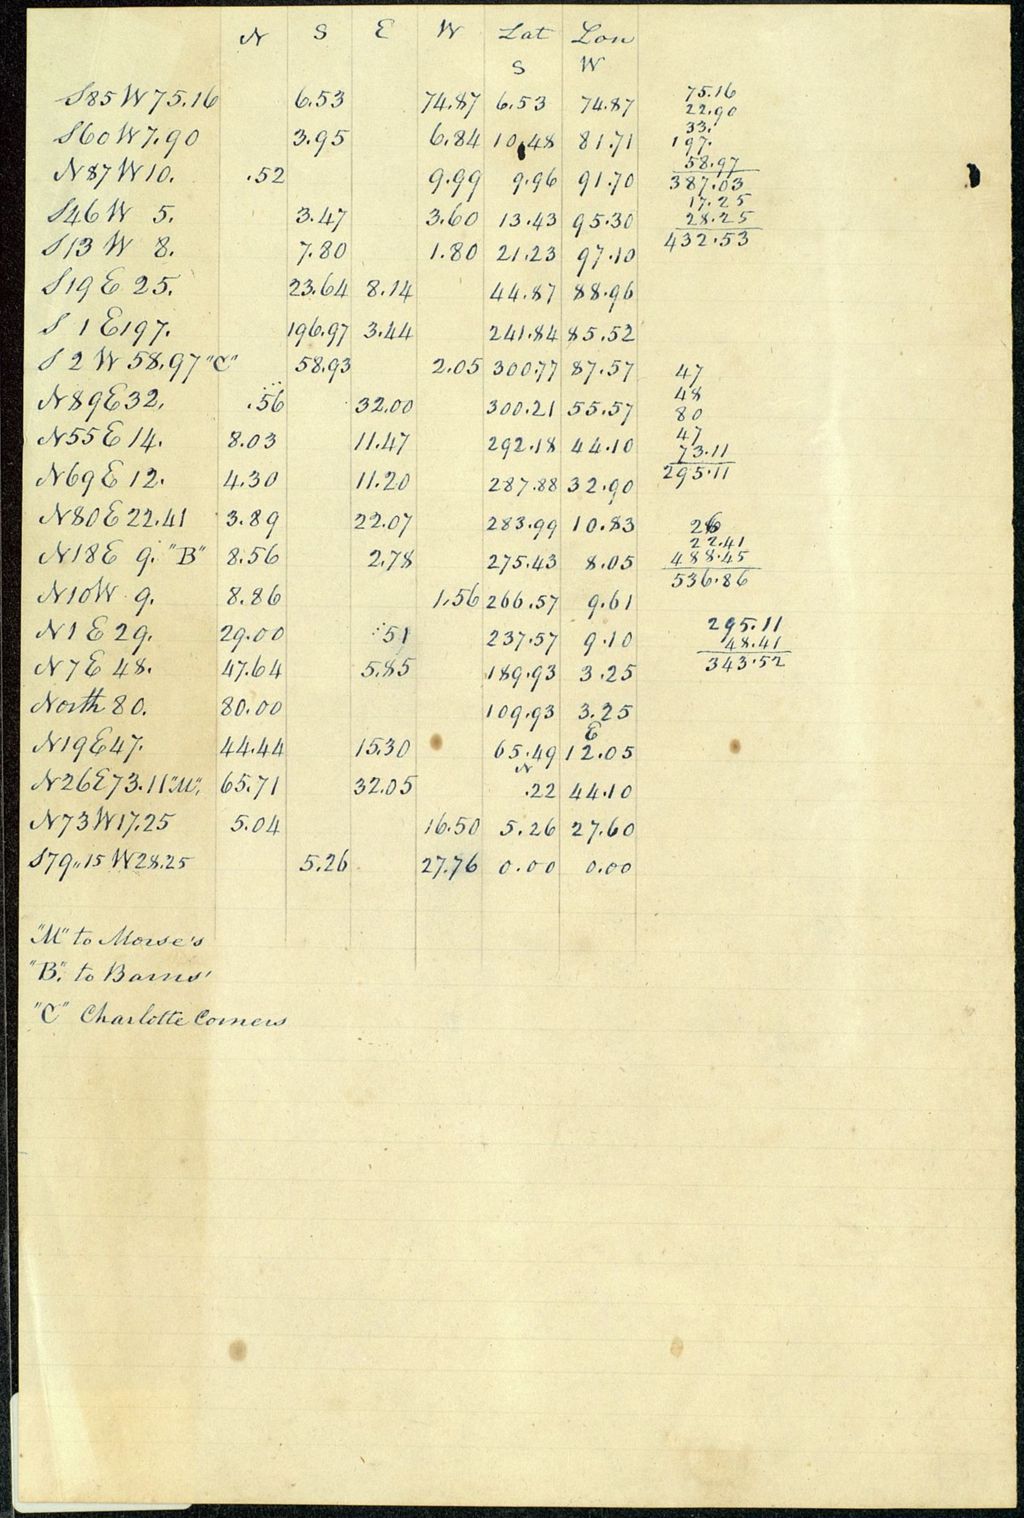 N S E W Lat Lon
S W
S85W75.16 6.53 74.87 6.53 74.87 75.16
22.90
S60W7.90 3.95 6.84 10.48 81.71 33.
197.
58.97
N87W10. .52 9.99 9.96 91.70 387.03
17.25
S46W 5. 3.47 3.60 13.43 95.30 28.25
S13W 8. 7.80 1.80 21.23 97.10 432.53
S19E 25. 23.64 8.14 44.87 88.96
S 1 E197. 196.97 3.44 241.84 85.52
S 2 W 58.97 "C" 58.93 2.05 300.77 87.57 47
48
N89E32. .56 32.00 300.21 55.57 80
N55E 14. 8.03 11.47 292.18 44.10 47
73.11
N69E 12. 4.30 11.20 287.88 32.90 295.11
N80E22.41 3.89 22.07 283.99 10.83 26
22.41
N18E 9. "B" 8.56 2.78 275.43 8.05 488.45
536.86
N10W 9. 8.86 1.56 266.57 9.61
N1E29. 29.00 .51 237.57 9.10 295.11
48.41
N7E48. 47.64 5.85 189.93 3.25 343.52
North 80. 80.00 109.93 3.25
E
N19E47. 44.44 15.30 65.49 12.05
N
N26E73.11 "M". 65.71 32.05 .22 44.10
N73W17.25 5.04 16.50 5.26 27.60
S79..15 W28.25 5.26 27.76 0.00 0.00
"M" to Morse's
"B". to Barns'
"C" Charlotte Corners